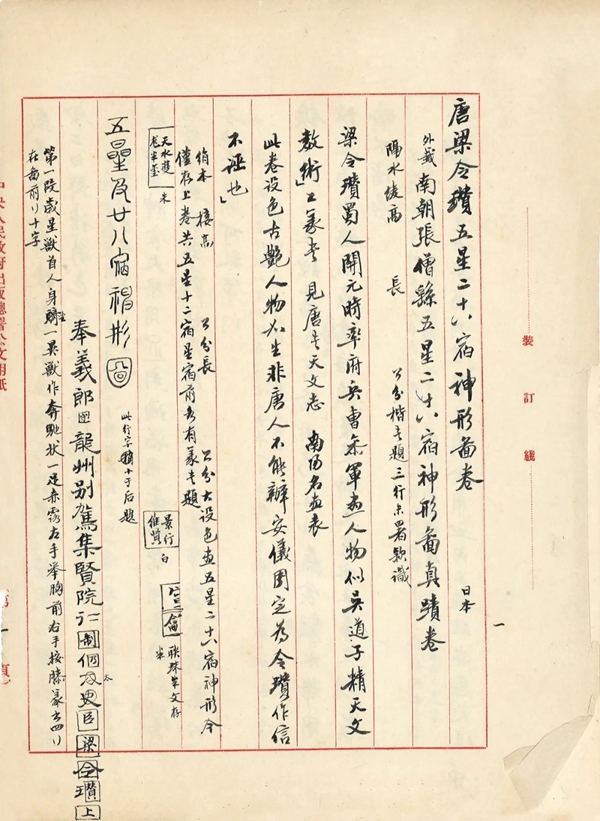 唐梁令瓚五星二十八宿神形圖卷 日本 一
外籤南朝張僧繇五星二十八宿神形圖真蹟卷
隔水綾高 長 公分楷書題三行未署款識
梁令瓚蜀人開元時率府兵曹參軍畫人物似吴道子精天文
數術工篆書見唐書天文志 南陽名畫表
此卷設色古艷人物如生非唐人不能辦安儀周定為令瓚作信
不誣也」
絹本 樓高 公分長 公分大設色畫五星二十八宿神形今
僅存上卷共五星十二宿星宿前書有篆書題
朱 景行維賢 白 聯珠 朱
五星及廿八宿神形圖 此行字蹟小于后題
奉義郎 龍州别駕集賢院 制 太史臣梁令瓚上
第一段歲星獸首人身騎一異獸作奔馳狀一足赤露左手舉胸前右手按膝篆書四行
在每前八十字
裝訂綫
中央人民政府出版總署公文用紙
第 頁